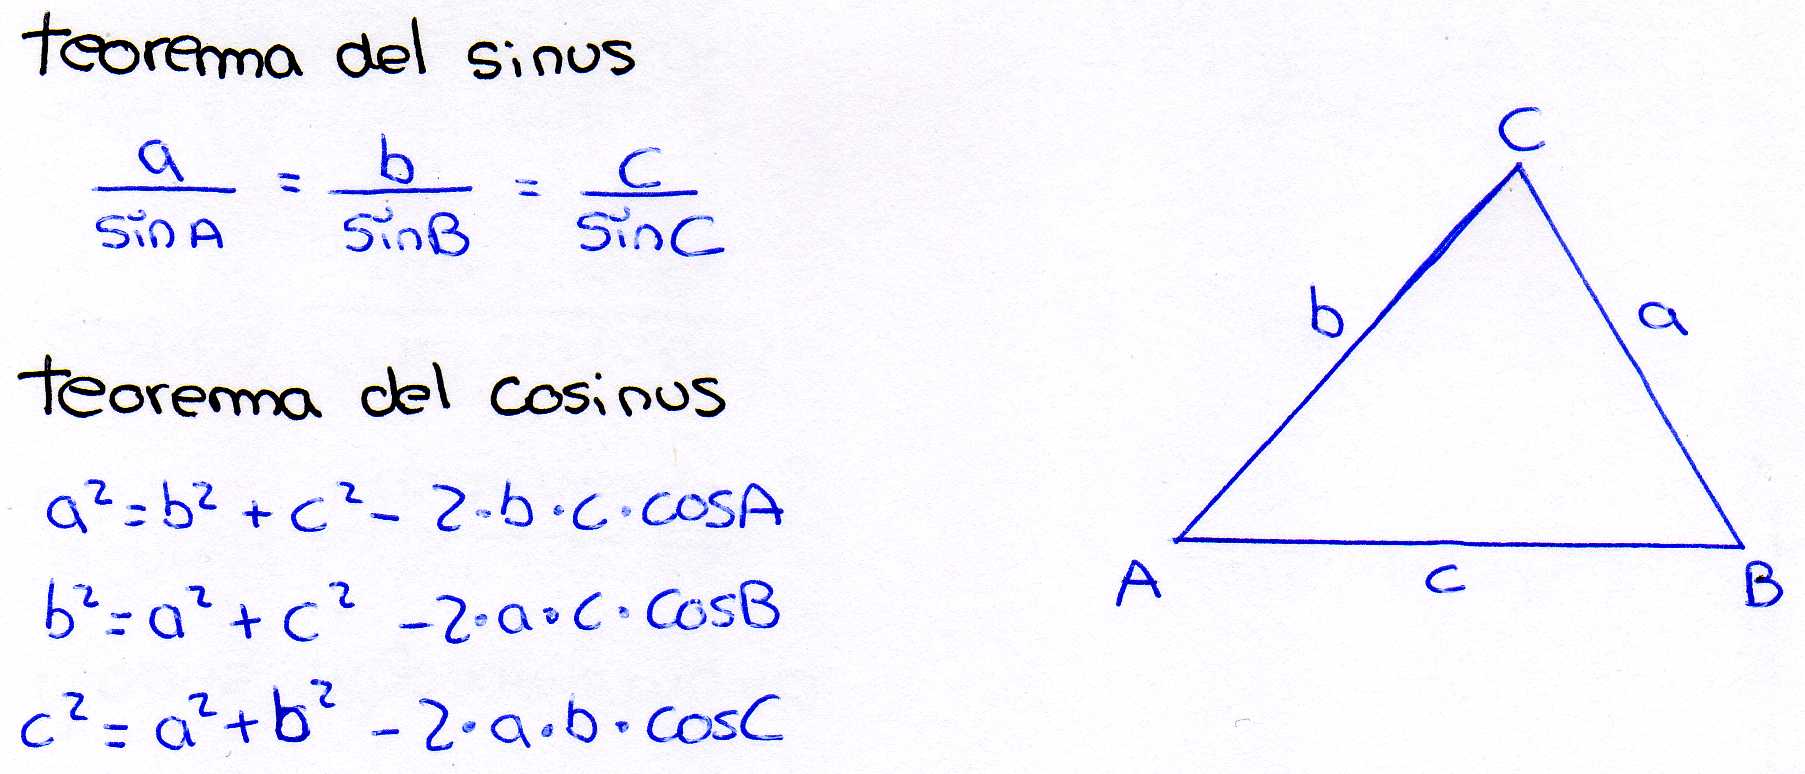 teorema del sinus
a/sinA = b/sinB = c/sinC
teorema del cosinus
a² = b² + c² - 2·b·c·cosA
b² = a² + c² - 2·a·c·cosB
c² = a² + b² - 2·a·b·cosC
C
b a
A c B